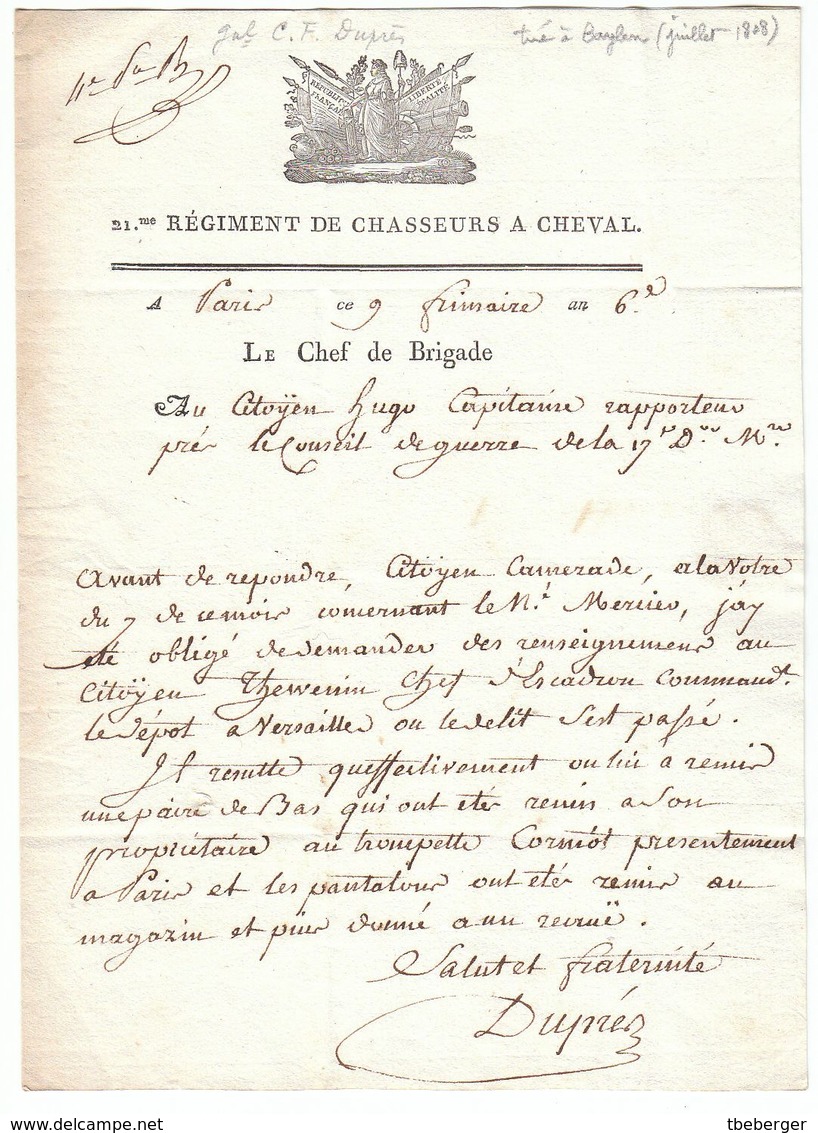 gal C. F. Duprès tué à Baylen (juillet 1808)
RÉPUBLIQUE FRANÇAISE LIBERTÉ EGALITÉ
21.me RÉGIMENT DE CHASSEURS A CHEVAL.
A Paris ce 9 frimaire an 6.e
LE Chef de Brigade
Au Citoÿen hugo Capitaine rapporteur
prés le Conseil de guerre de la 17e Don Mre
Avant de repondre, Citoÿen Camerade, a la Votre
du 7 de ce mois concernant le Né Mercier, j'ay
été obligé de demander des renseignemens au
Citoÿen Thewenin Chef d'Escadron Command.t
le dépot a Versailles ou le delit s'est passé.
Il resulte qu'effectivement on lui à remis
une paire de Bas qui ont etés remis a son
propriétaire au trompette Cormöt presentement
a Paris et les pantalons ont etés remis au
magazin et püis donné a un recruë.
Salut et fraternité
Duprés
delcampe.net tbeberger